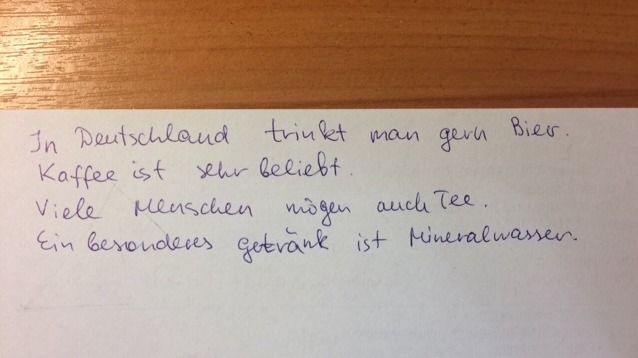 In Deutschland trinkt man gern Bier.
Kaffee ist sehr beliebt.
Viele Menschen mögen auch Tee.
Ein besonderes Getränk ist Mineralwasser.